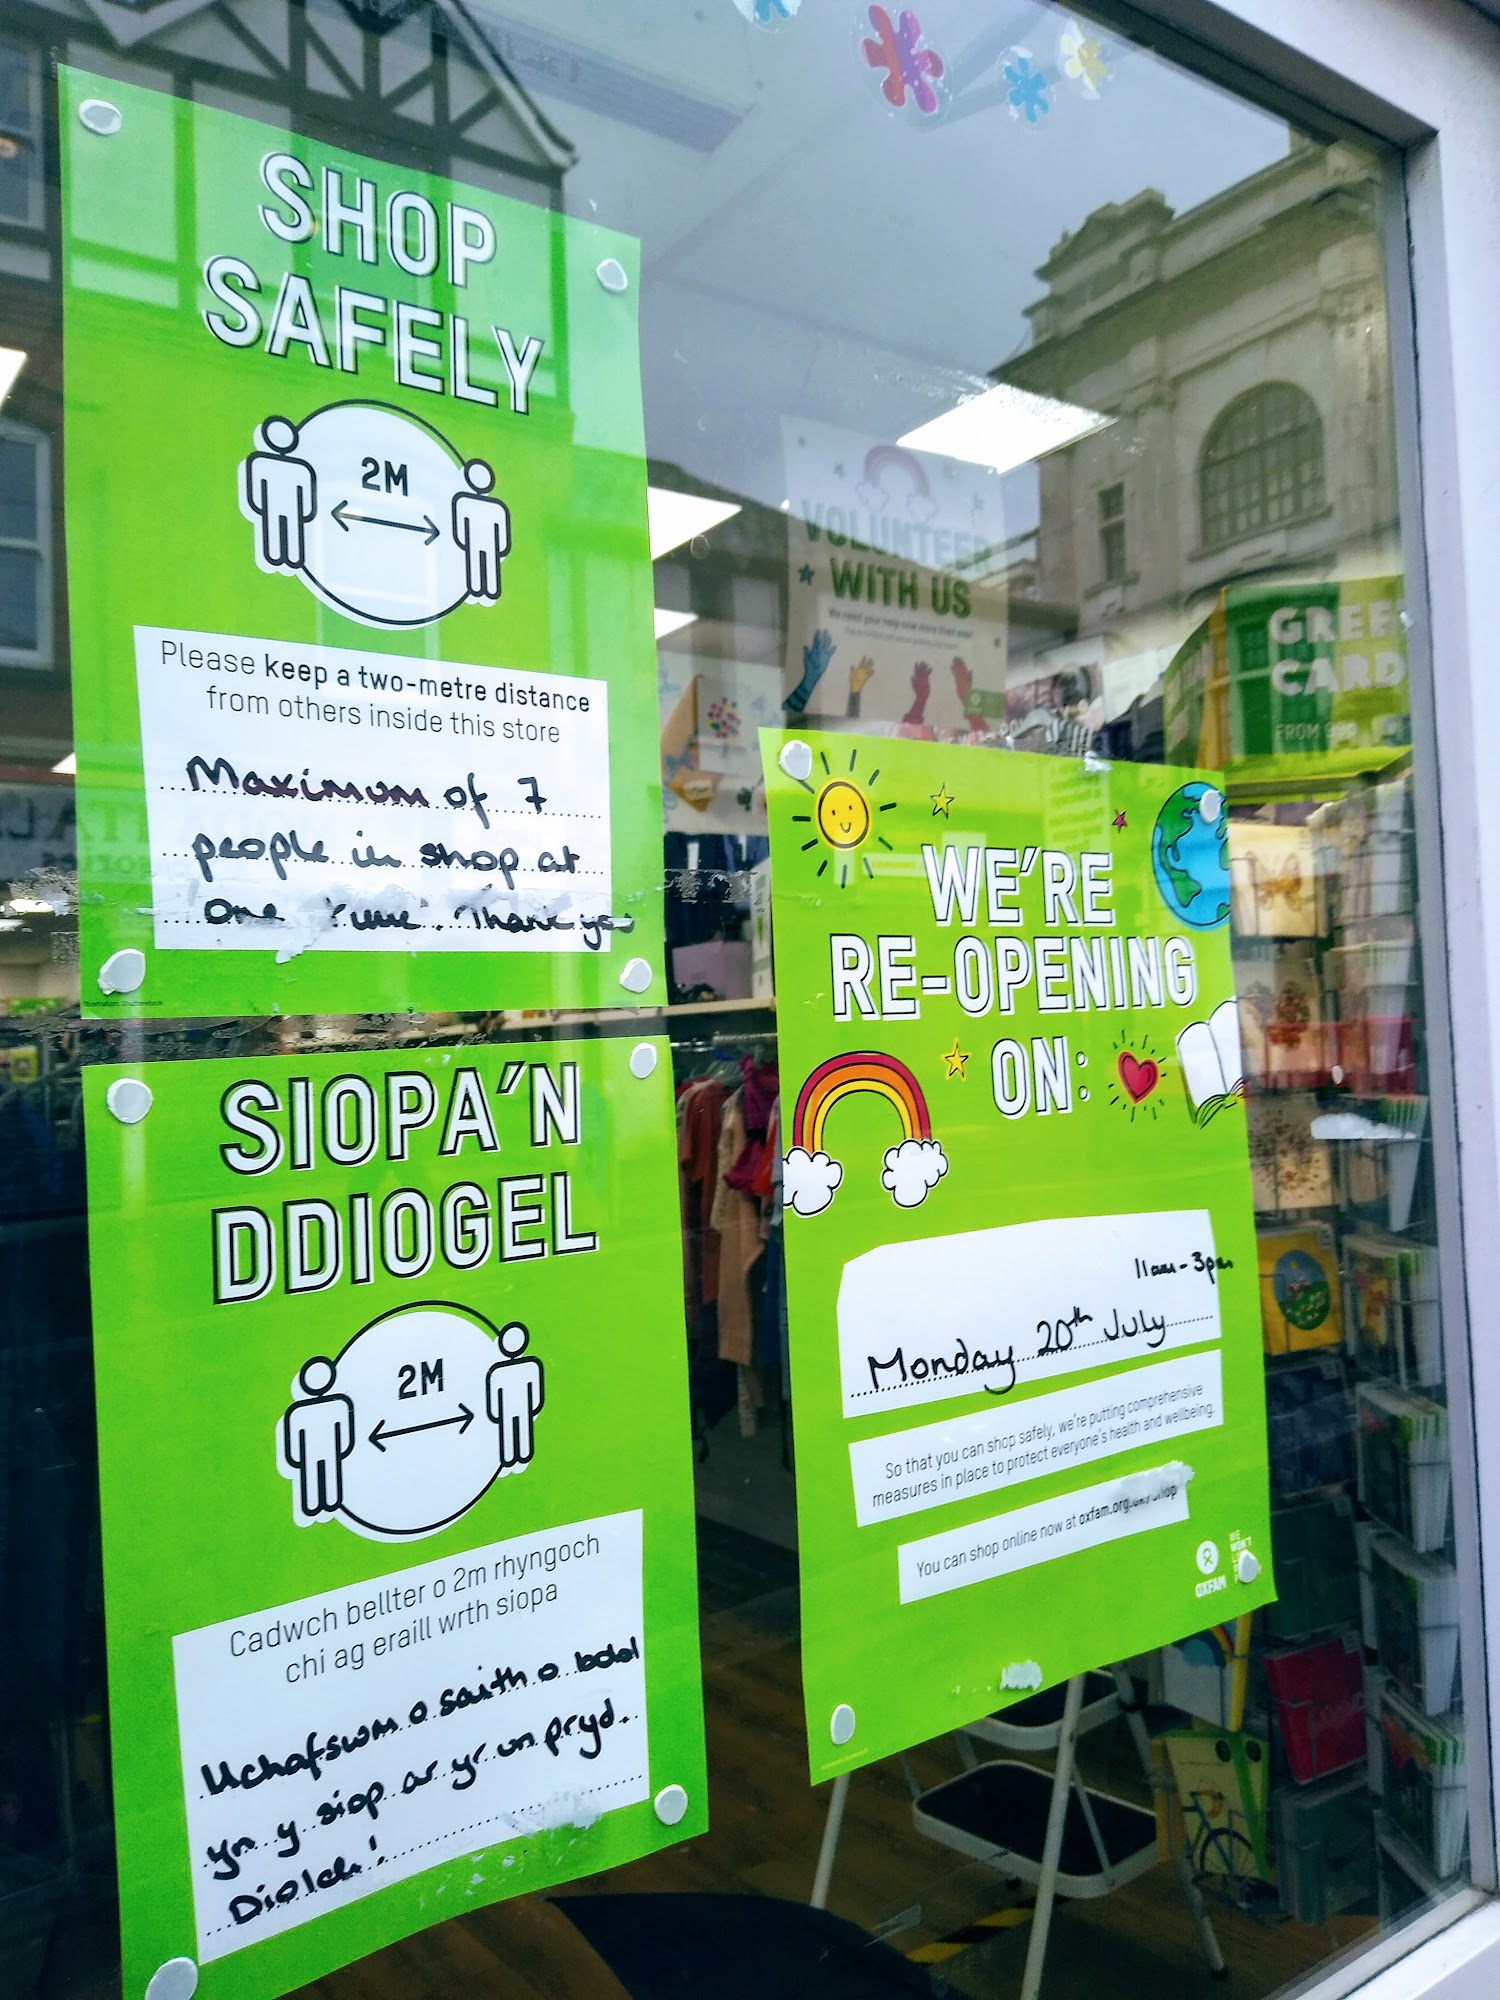 SHOP
SAFELY
2M
Please keep a two-metre distance
from others inside this store
Maximum of 7
people in shop at
one time. Thank you
SIOPA'N
DDIOGEL
2M
Cadwch bellter o 2m rhyngoch
chi ag eraill wrth siopa
Uchafswm o saith o bobl
yn y siop ar yr un pryd.
Diolch!
VOLUNTEER
WITH US
We need your help now more than ever!
GREE
CARD
FROM 99p
WE'RE
RE-OPENING
ON:
11am-3pm
Monday 20th July
So that you can shop safely, we're putting comprehensive
measures in place to protect everyone's health and wellbeing.
You can shop online now at oxfam.org.uk/shop
OXFAM